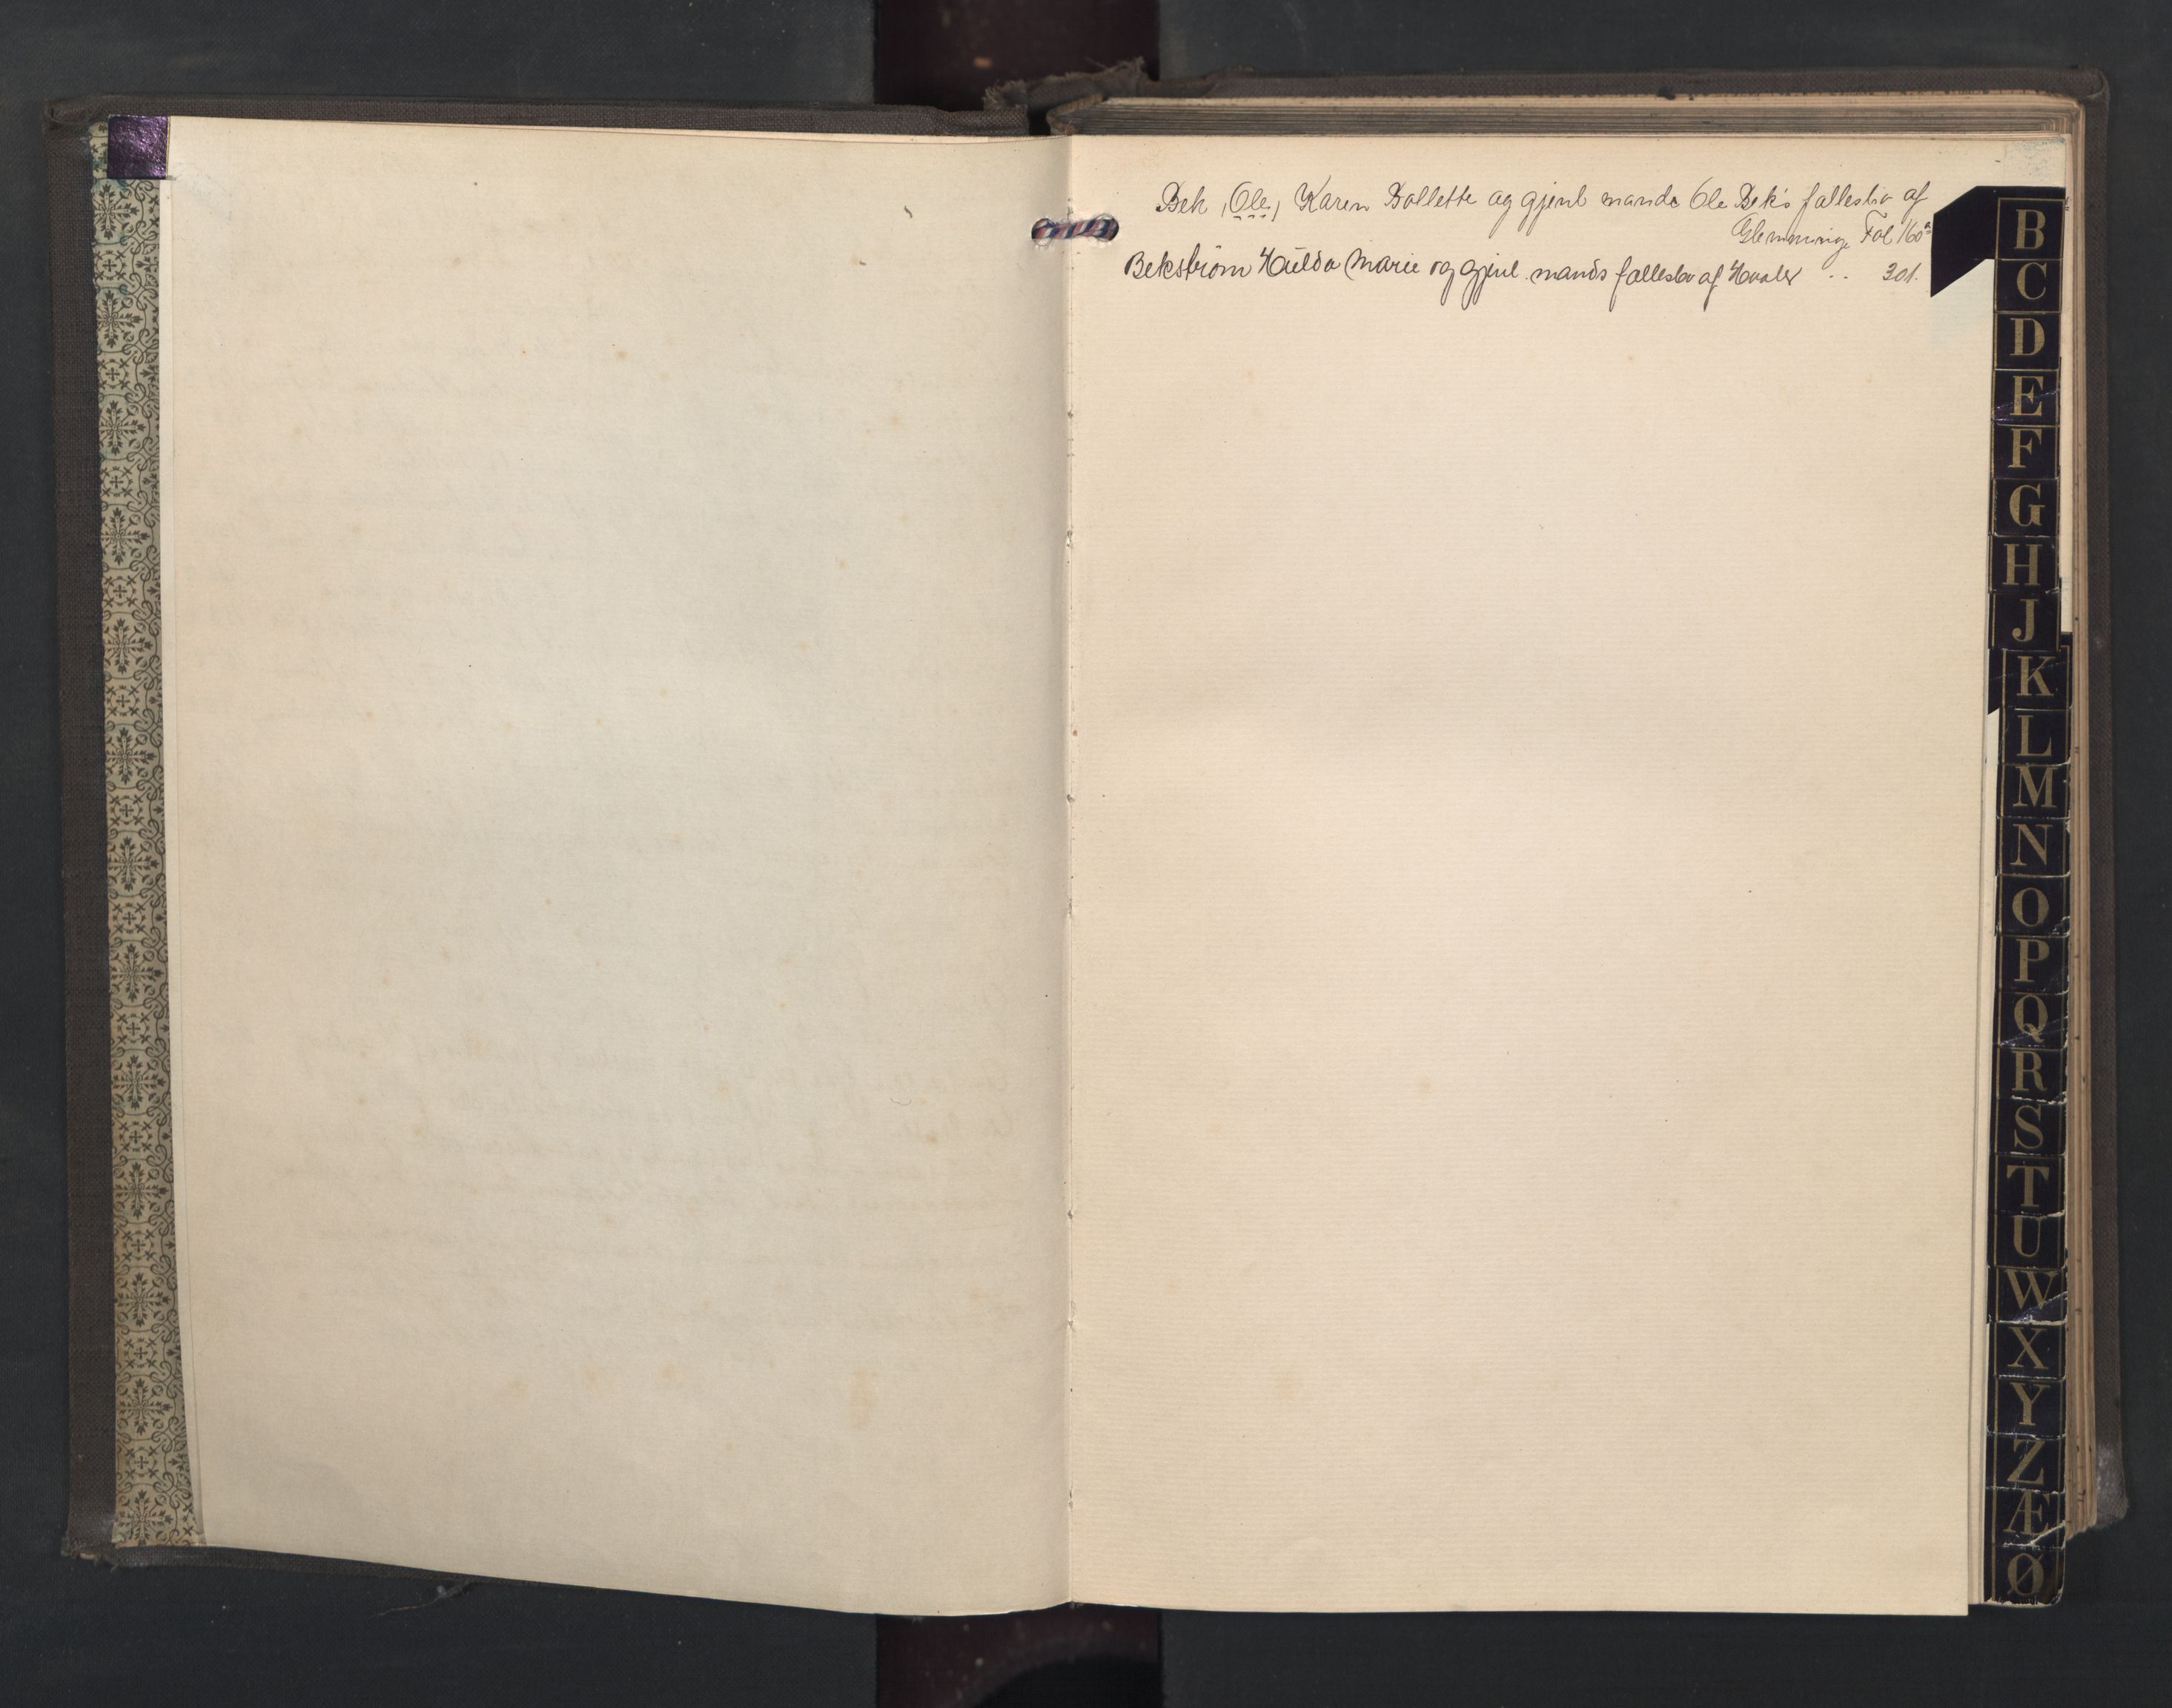 Bek, (Ole) Karen Bollette og gjenl mands Ole Bek's fællesbo af
Glemminge Fol 160ª
Bekström Hulda Marie og gjenl. mands fællesbo af Hvaler .. 301.
B
C
D
E
F
G
H
J
K
L
M
N
O
P
Q
R
S
T
U
W
X
Y
Z
Æ
Ø